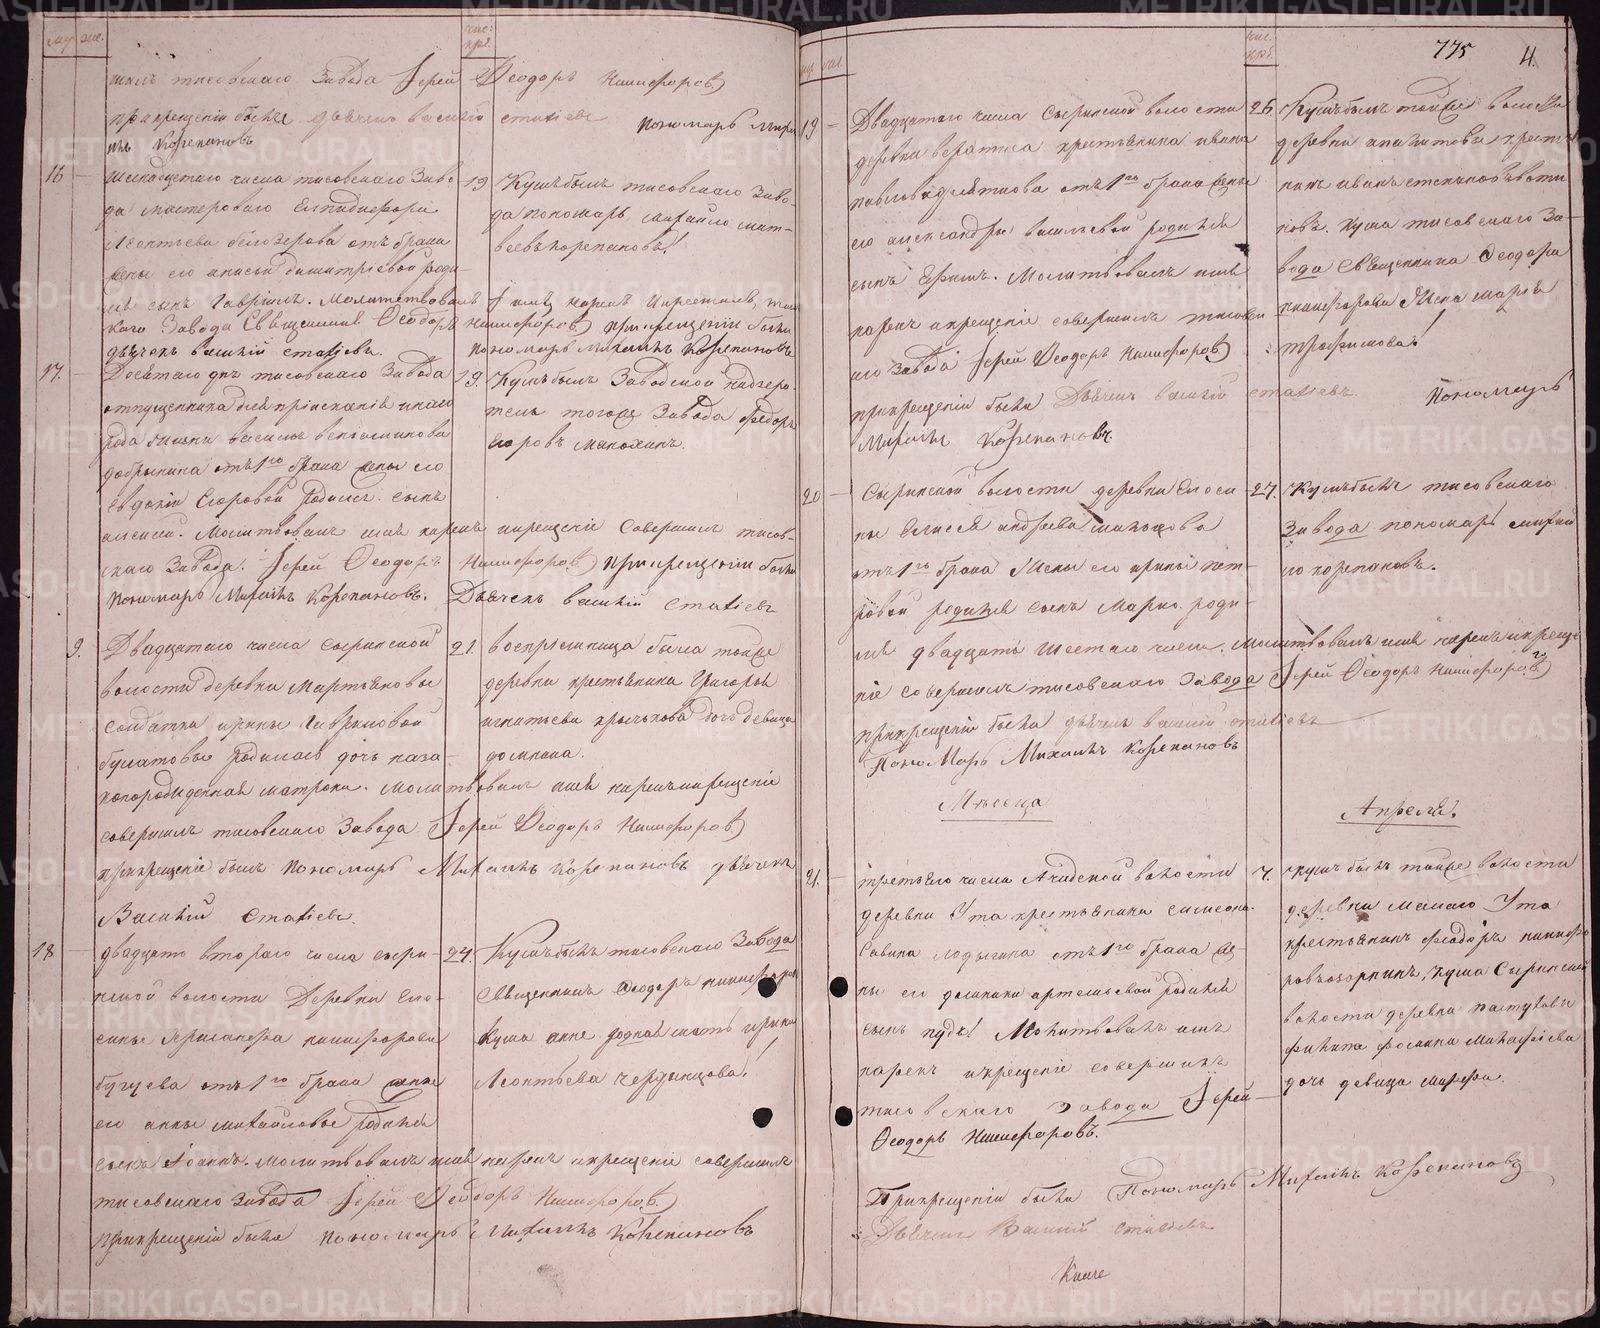 му
же.
чис:
кре.
шилъ тисовскаго Завода Іерей Ѳеодоръ Никифоровъ
при крещеніи были дьячекъ василій статіевъ пономарь Миха
илъ Корепановъ
16
шеснадцетаго числа тисовскаго Заво
да мастероваго Елпидифора
Леонтьева белозерова отъ брака
жены его анисьи димитріевой роди
лся сынъ Гавріилъ. Молитвовалъ Имя нарекъ и крестилъ, тисов
скаго Завода Священникъ Ѳеодоръ Никифоровъ при крещеніи были
дьячекъ василій статіевъ. пономарь Михаилъ Корепановъ
19
Кумъ былъ тисовскаго Заво-
да пономарь Михайло мат-
веевъ корепановъ!
17.
Девятаго дек тисовскаго Завода
отпущенника для пріисканія инаго
рода жизни василья веніаминова
добрынина отъ 1го брака жены его
Евдокіи Егоровой Родился сынъ
алексій. Молитвовалъ имя нарекъ и крещеніе Совершилъ тисов-
скаго Завода. Іерей Ѳеодоръ Никифоровъ при крещеніи были
Пономарь Михаилъ Корепановъ. Дьячекъ василій Статіевъ
19.
Кумъ былъ Заводской надзера-
тель того же Завода Федоръ
Егоровъ Манохинъ.
9.
Двадцатаго числа сыринской
волости деревни Мартьяновы
солдатки ирины Гавриловой
булатовы Родилась дочь неза-
коннорожденная матрона. Молитвовалъ имя нарекъ и крещеніе
совершилъ тисовскаго Завода Іерей Ѳеодоръ Никифоровъ
при крещеніе былъ Пономарь Михаилъ Корепановъ дьячекъ
Василій Статіевъ
21.
воспріемница была той же
деревни крестьянина Григорья
игнатьева крычкова дочь девица
домнана.
18
двадцать втораго числа сыри-
нской волости Деревни Сло-
Никифорова
бугуева отъ 1го брака жены
его анны михайловы Родился
сынъ Іоаннъ. молитвовалъ имя нарекъ и крещеніе совершилъ
тисовскаго завода Іерей Ѳеодоръ Никифоровъ
при крещеніи были пономарь Михаилъ Корепановъ
24
Кумъ былъ тисовскаго Завода
Священникъ Ѳеодоръ никифоров
Кума анне родная мать ирина
Леонтьева чердынцова!
му
же.
чис.
кре.
775
4.
19
Двадцатаго числа Сыринской волости
деревни крестьянина ивана
павлова отъ 1го брака жены
его александры васильевой родился
сынъ Ефимъ. Молитвовалъ имя
нарекъ и крещеніе совершилъ тисовска
го Завода Іерей Ѳеодоръ Никифоровъ
при крещеніи были Дьячекъ василій статіевъ Пономарь
Михаилъ Корепановъ.
26.
Кумъ былъ той же волости
деревни крестья
нинъ иванъ степановъ
новъ. Кума тисовскаго За-
вода Священника Ѳеодора
никифорова Жена марья
трофимова!
20
Сыринской волости деревни
ны елисея андреева
отъ 1го брака Жены его ирины пет-
ровой родился сынъ Марко. роди
лся двадцать шестаго числа. молитвовалъ имя нарекъ и креще
ніе совершилъ тисовскаго Завода Іерей Ѳеодоръ Никифоровъ
при крещеніи были дьячекъ василій статіевъ
Пономарь Михаилъ Корепановъ
27.
Кумъ былъ тисовскаго
Завода пономарь михай
ло корепановъ.
Мѣсеца
Апреля.
21.
третьяго числа Ачидской волости
деревни Ута крестьянина симеона
Савина лодыгина отъ 1го брака же-
ны его домники артемьевой родился
сынъ пудъ! Молитвовалъ имя
нарекъ и крещеніе совершилъ
тисовскаго завода Іерей
Ѳеодоръ Никифоровъ.
При крещеніи были Пономарь Михаилъ Корепановъ
Дьячекъ Василій статіевъ
7.
кумъ былъ той же волости
деревни малаго Ута
крестьянинъ федоръ никифо
ровъ кума Сыринской
волости деревни пастуховы
филипа фомина
дочь девица марфа.